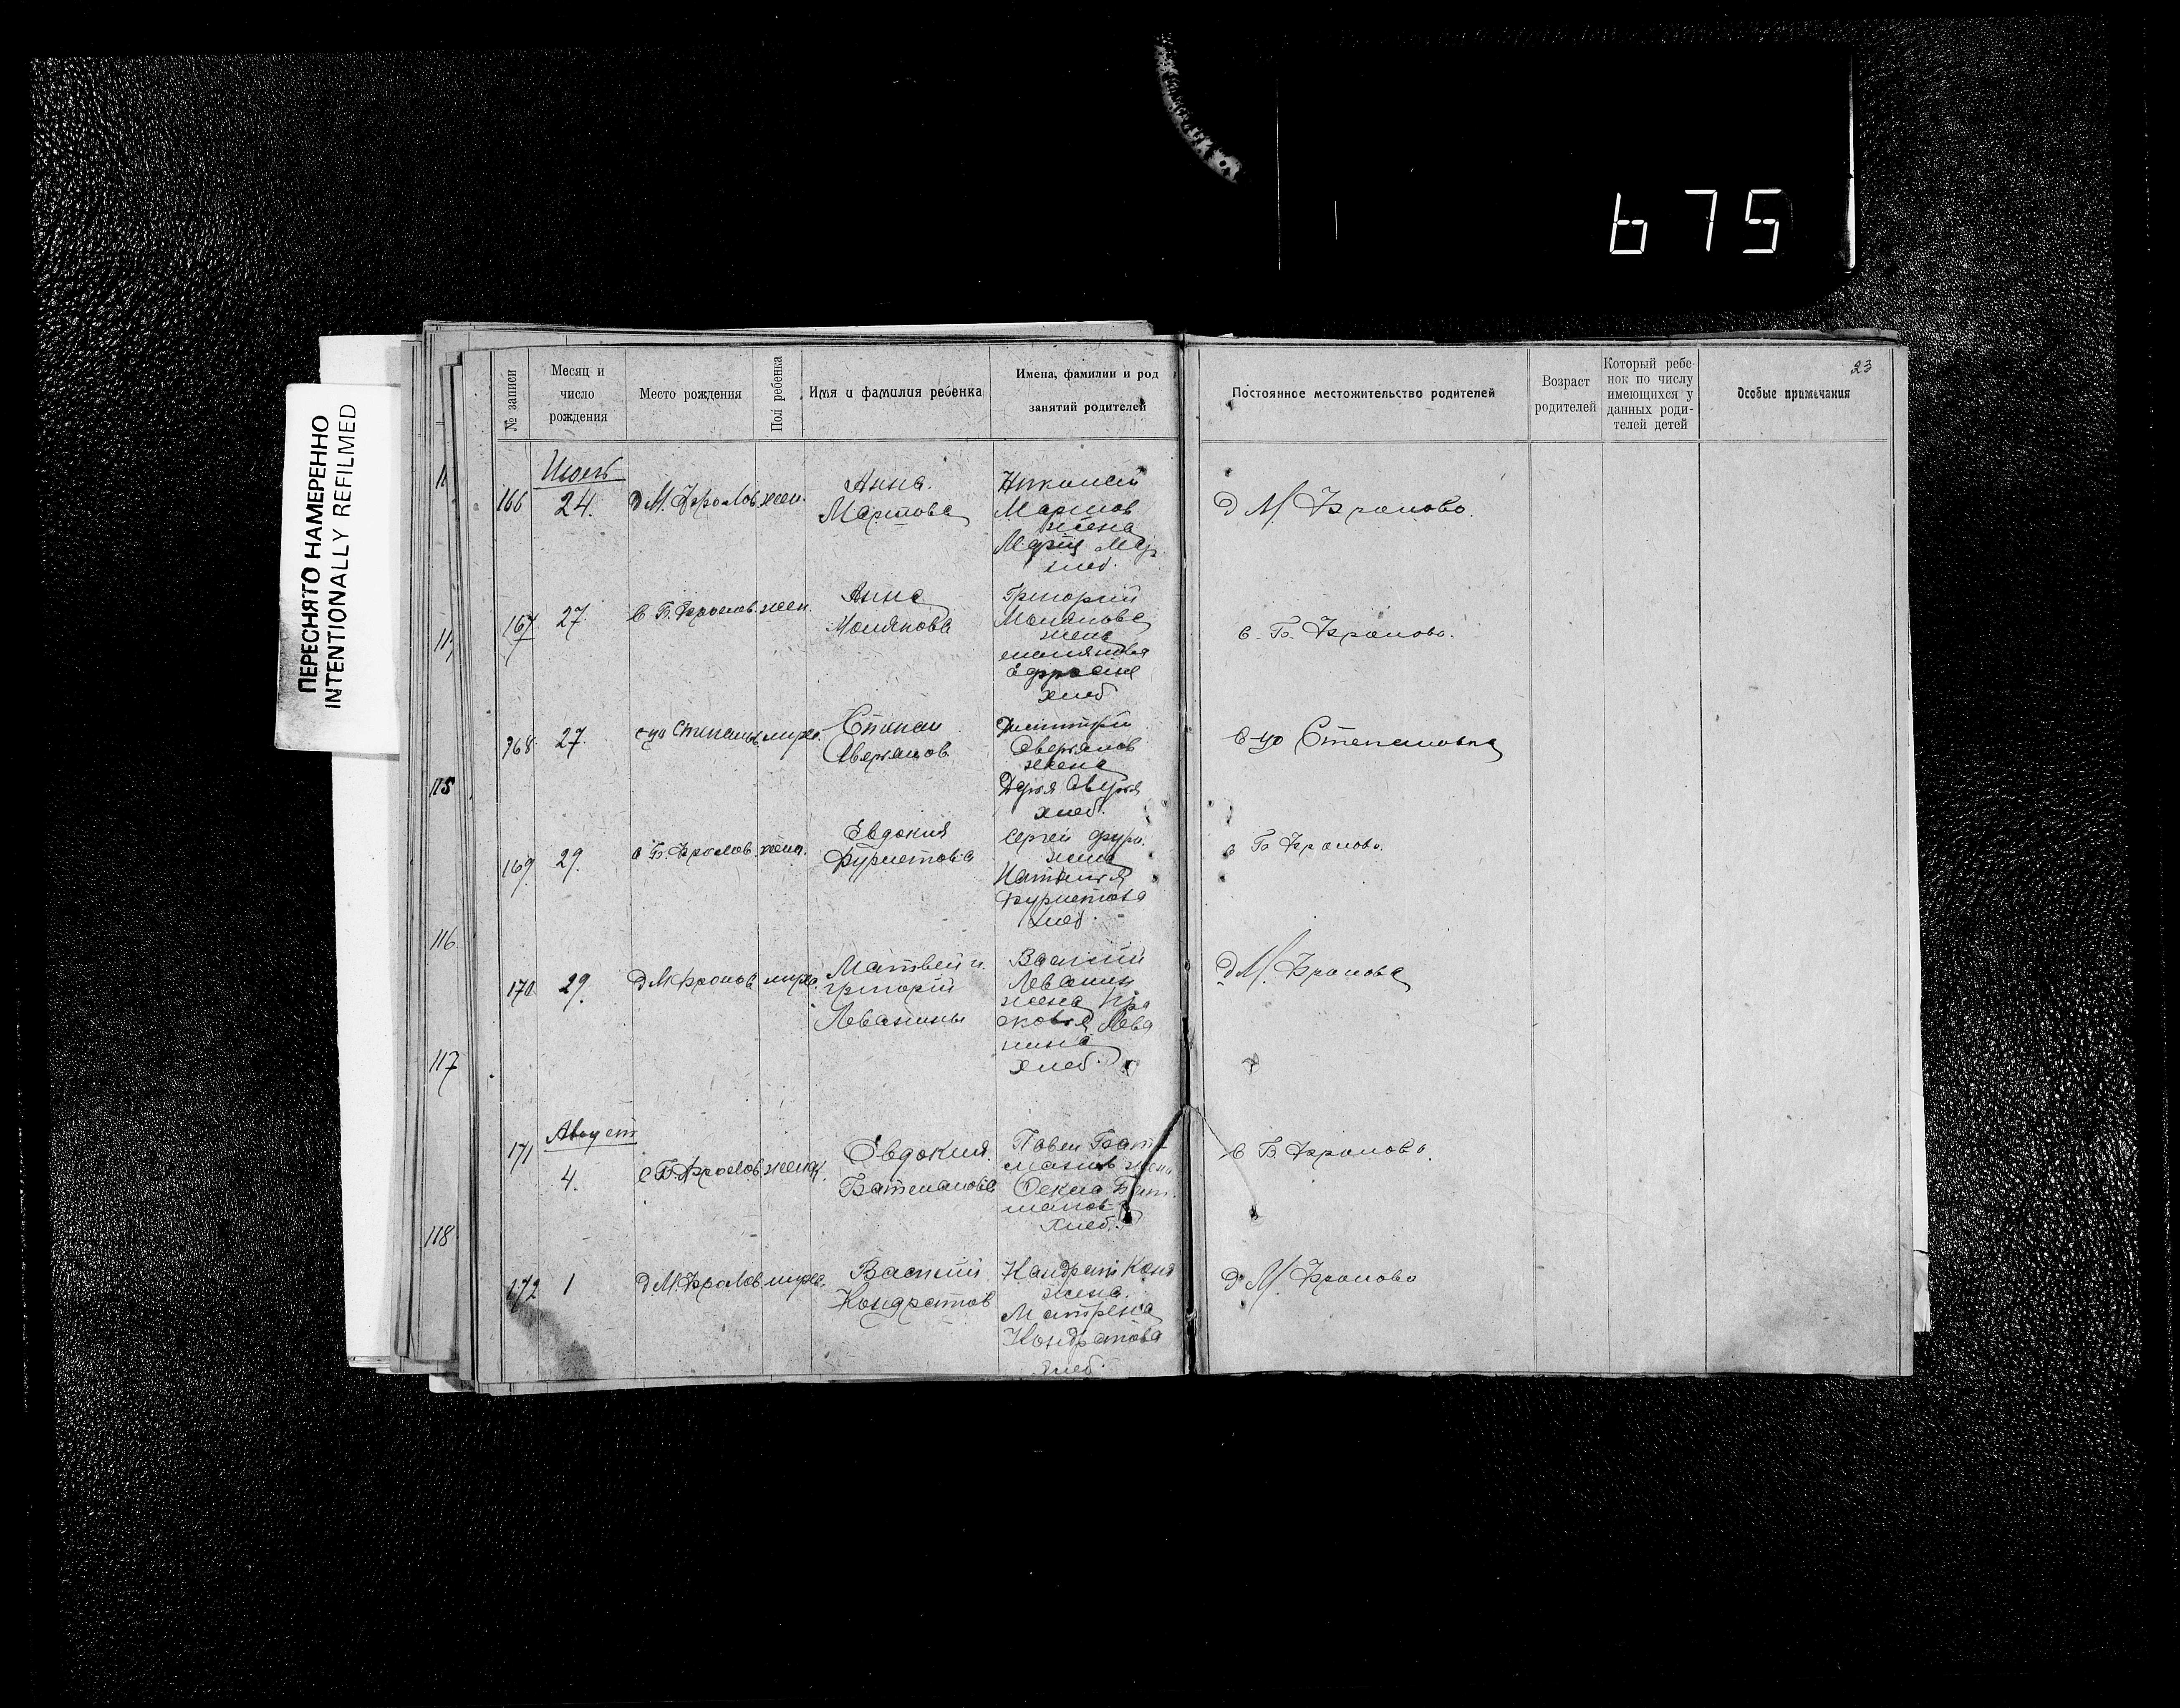 675
ПЕРЕСНЯТО НАМЕРЕННО
INTENTIONALLY REFILMED
23
№ записи
Месяц и число рождения
Место рождения
Пол ребенка
Имя и фамилия ребенка
Имена, фамилии и род занятий родителей
Постоянное местожительство родителей
Возраст родителей
Который ребенок по числу имеющихся у данных родителей детей
Особые примечания
Июль
166 24. д М. Фролов жен. Анна. Мартова Николай Мартов жена Мария Мар. хлеб. д М. Фролово.
167 27. с Б. Фролов. жен. Анна Григорий жена хлеб с. Б. Фролово.
168 27. с-цо Степанов. Степан Аверьянов Дмитрий Аверьянов жена Дарья хлеб. с-цо Степановка
169. 29. с Б. Фролов жен. Евдокия Сергей жена Наталия хлеб. с Б Фролово.
170 29. д М Фролов Матвей и Григорий Леванины Василий Леванин жена Прасковья Леванина хлеб. д М. Фролово
Август
171 4. с Б. Фролов. Евдокия. Батманова Павел Батманов жена хлеб. с Б Фролово.
172 1 д М. Фролов Василий Кондратов Кондрат Конд жена. Матрена Кондратова хлеб. д М. Фролово
115
116
117
118